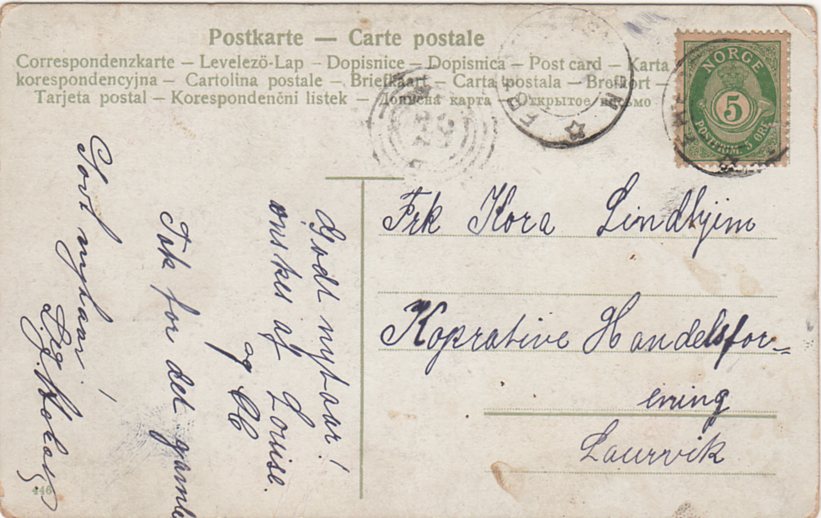 Postkarte — Carte postale
Correspondenzkarte – Levelező-Lap – Dopisnice – Dopisnica – Post card – Karta
korespondencyjna – Cartolina postale – Briefkaart – Carta postala – Brefkort –
Tarjeta postal – Korespondenční listek – Дописна карта – Открытое письмо
NORGE
5
POSTFRIM. 5 ØRE
Frk Kora Lindhjim
Koprative Handelsfor-
ening
Laurvik
Godt nytaar!
ønskes af Louise.
og
Tak for det gamle
Godt nytaar!
446